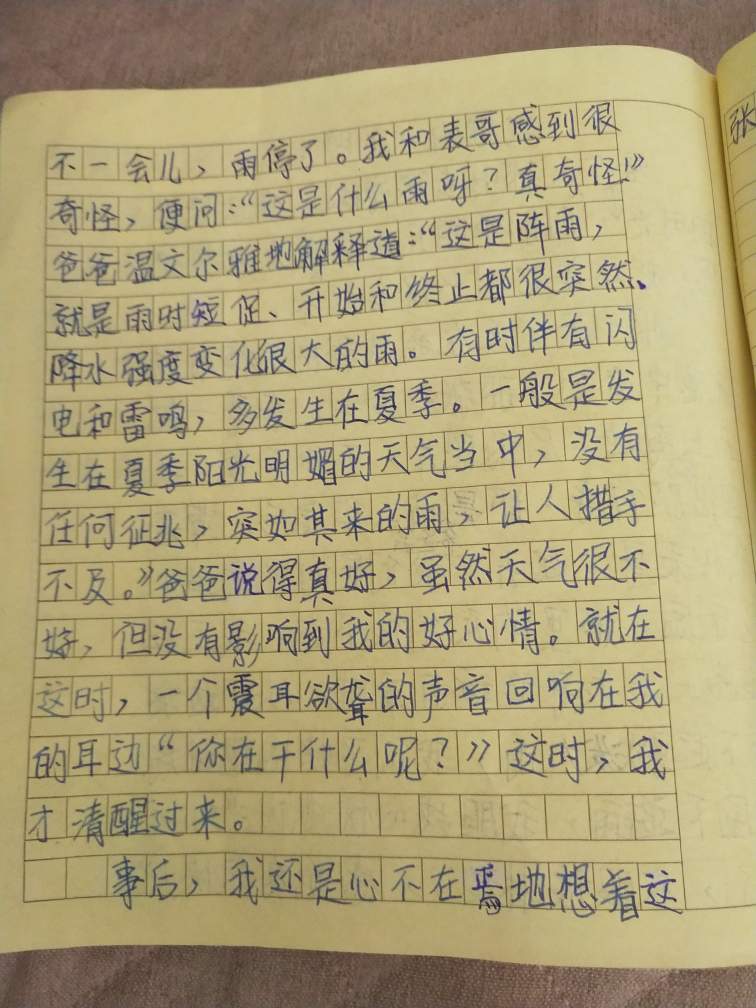 不一会儿，雨停了。我和表哥感到很
奇怪，便问：“这是什么雨呀？真奇怪！”
爸爸温文尔雅地解释道：“这是阵雨，
就是雨时短促、开始和终止都很突然、
降水强度变化很大的雨。有时伴有闪
电和雷鸣，多发生在夏季。一般是发
生在夏季阳光明媚的天气当中，没有
任何征兆，突如其来的雨，让人措手
不及。”爸爸说得真好，虽然天气很不
好，但没有影响到我的好心情。就在
这时，一个震耳欲聋的声音回响在我
的耳边“你在干什么呢？”这时，我
才清醒过来。
事后，我还是心不在焉地想着这
张